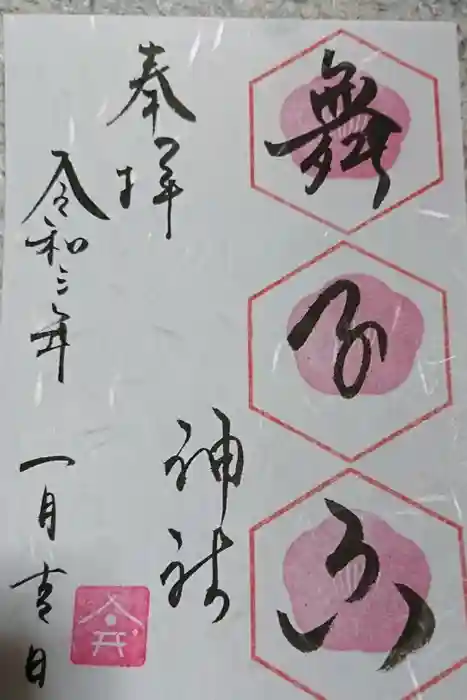 舞子六
神社
奉拝
令和三年一月吉日